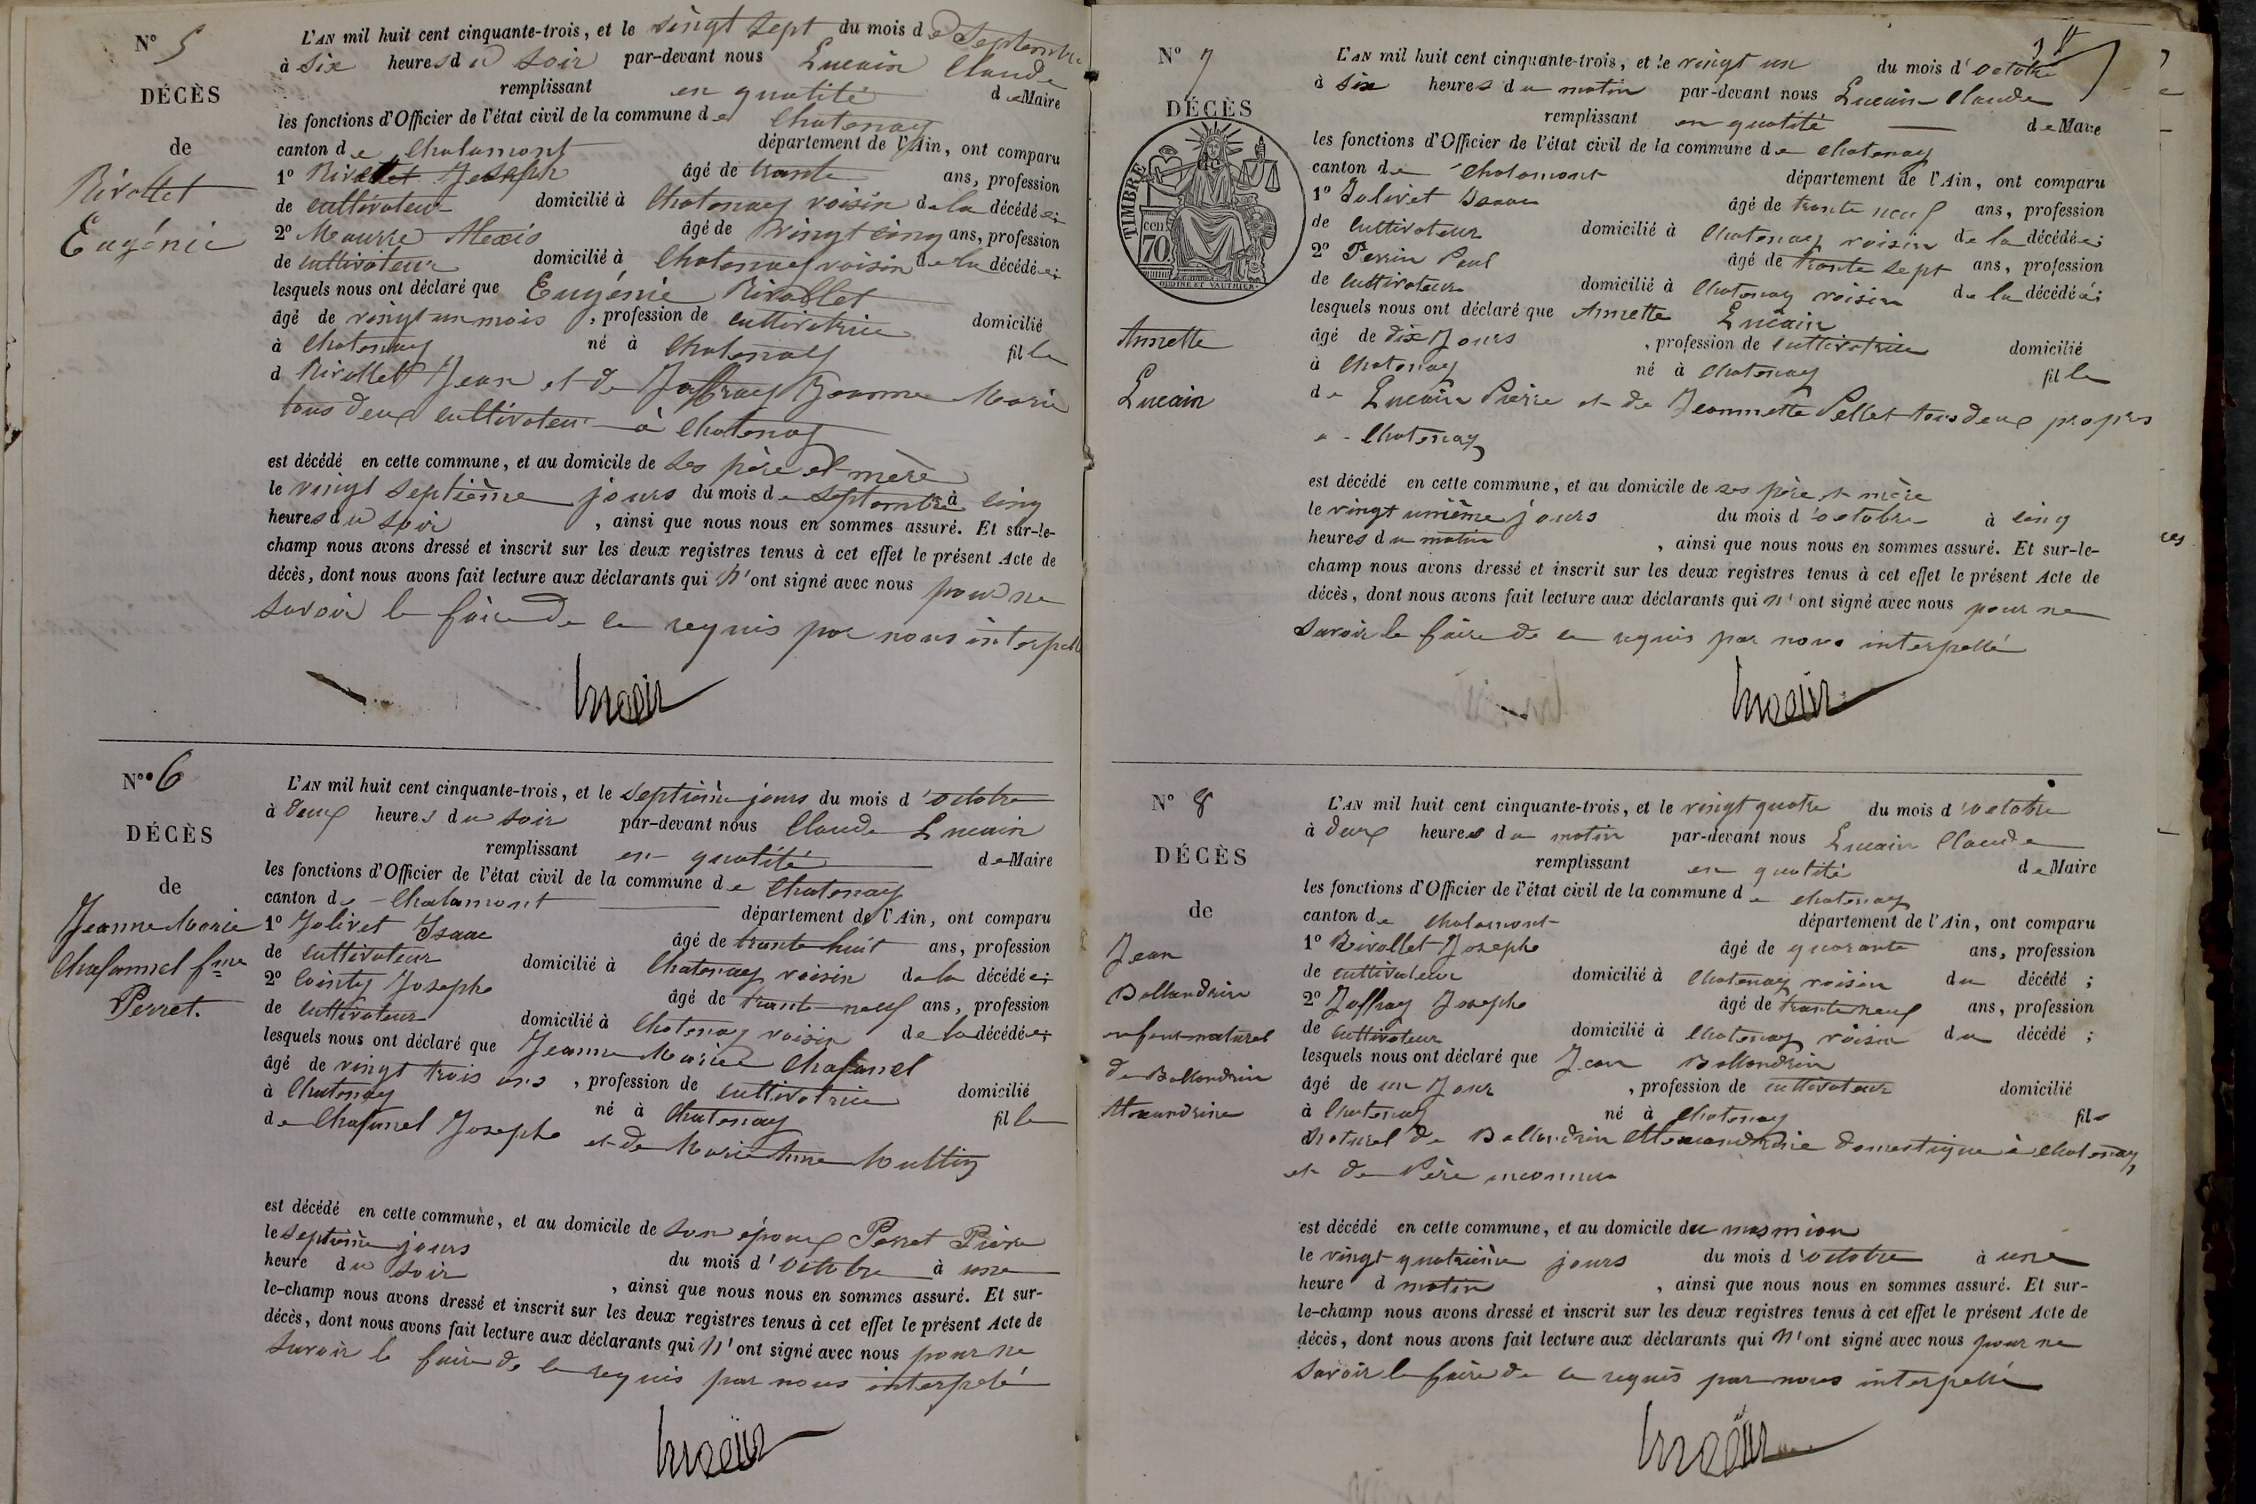 N° 5
DÉCÈS
de
Rivollet
Eugénie
L'AN mil huit cent cinquante-trois, et le vingt sept du mois de Septembre
à six heures du soir par-devant nous Lucain Claude
remplissant en qualité de Maire
les fonctions d'Officier de l'état civil de la commune de Chatenay
canton de Chalamont département de l'Ain, ont comparu
1° Rivollet Joseph âgé de trente ans, profession
de cultivateur domicilié à Chatenay voisin de la décédée;
2° Meurre Alexis âgé de vingt cinq ans, profession
de cultivateur domicilié à Chatenay voisin de la décédée;
lesquels nous ont déclaré que Eugénie Rivollet
âgé de vingt un mois, profession de cultivatrice domicilié
à Chatenay né à Chatenay fille
d Rivollet Jean et de Joffray Jeanne Marie
tous deux cultivateur à Chatenay
est décédé en cette commune, et au domicile de ses père et mère
le vingt septième jours du mois de septembre à cinq
heures du soir, ainsi que nous nous en sommes assuré. Et sur-le-
champ nous avons dressé et inscrit sur les deux registres tenus à cet effet le présent Acte de
décès, dont nous avons fait lecture aux déclarants qui n'ont signé avec nous pour ne
savoir le faire de ce requis par nous interpellé
Lucain
N° 6
DÉCÈS
de
Jeanne Marie
Chafannel fme
Perret.
L'AN mil huit cent cinquante-trois, et le septième jours du mois d'octobre
à deux heures du soir par-devant nous Claude Lucain
remplissant en qualité de Maire
les fonctions d'Officier de l'état civil de la commune de Chatenay
canton de Chalamont département de l'Ain, ont comparu
1° Jolivet Isaac âgé de trente huit ans, profession
de cultivateur domicilié à Chatenay voisin de la décédée;
2° Cointy Joseph âgé de trente neuf ans, profession
de cultivateur domicilié à Chatenay voisin de la décédée;
lesquels nous ont déclaré que Jeanne Marie Chafanel
âgé de vingt trois ans, profession de cultivatrice domicilié
à Chatenay né à Chatenay fille
de Chafanel Joseph et de Marie Anne
est décédé en cette commune, et au domicile de son époux Perret Pierre
le septième jours du mois d'octobre à une
heure du soir, ainsi que nous nous en sommes assuré. Et sur-
le-champ nous avons dressé et inscrit sur les deux registres tenus à cet effet le présent Acte de
décès, dont nous avons fait lecture aux déclarants qui n'ont signé avec nous pour ne
savoir le faire de ce requis par nous interpelé
Lucain
N° 7
DÉCÈS
TIMBRE
70 cen
OUDINÉ ET VAUTHIER
Annette
Lucain
L'AN mil huit cent cinquante-trois, et le vingt un du mois d'octobre
à six heures du matin par-devant nous Lucain Claude
remplissant en qualité de Maire
les fonctions d'Officier de l'état civil de la commune de Chatenay
canton de Chalamont département de l'Ain, ont comparu
1° Jolivet Isaac âgé de trente neuf ans, profession
de cultivateur domicilié à Chatenay voisin de la décédée;
2° Perrin Paul âgé de trente sept ans, profession
de cultivateur domicilié à Chatenay voisin de la décédée;
lesquels nous ont déclaré que Annette Lucain
âgé de dix jours, profession de cultivatrice domicilié
à Chatenay né à Chatenay fille
de Lucain Pierre et de Jeannette Pellet tous deux propres
a Chatenay
est décédé en cette commune, et au domicile de ses père et mère
le vingt unième jours du mois d'octobre à cinq
heures du matin, ainsi que nous nous en sommes assuré. Et sur-le-
champ nous avons dressé et inscrit sur les deux registres tenus à cet effet le présent Acte de
décès, dont nous avons fait lecture aux déclarants qui n'ont signé avec nous pour ne
savoir le faire de ce requis par nous interpellé
Lucain
N° 8
DÉCÈS
de
Jean
Bollandrin
enfant naturel
de Bollandrin
Alexandrine
L'AN mil huit cent cinquante-trois, et le vingt quatre du mois d'octobre
à deux heures du matin par-devant nous Lucain Claude
remplissant en qualité de Maire
les fonctions d'Officier de l'état civil de la commune de Chatenay
canton de Chalamont département de l'Ain, ont comparu
1° Rivollet Joseph âgé de quarante ans, profession
de cultivateur domicilié à Chatenay voisin du décédé;
2° Joffray Joseph âgé de trante neuf ans, profession
de cultivateur domicilié à Chatenay voisin du décédé;
lesquels nous ont déclaré que Jean Bollandrin
âgé de un Jour, profession de cultivateur domicilié
à Chatenay né à Chatenay fils
naturel de Bollandrin Alexandrine domestique à Chatenay
et de Père inconnu
est décédé en cette commune, et au domicile du
le vingt quatrième jours du mois d'octobre à une
heure d matin, ainsi que nous nous en sommes assuré. Et sur-
le-champ nous avons dressé et inscrit sur les deux registres tenus à cet effet le présent Acte de
décès, dont nous avons fait lecture aux déclarants qui n'ont signé avec nous pour ne
savoir le faire de ce requis par nous interpellé
Lucain